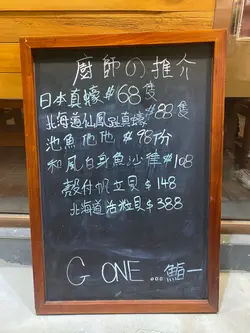 廚師の推介
日本真蠔$68隻
北海道仙鳳趾真蠔$88隻
池魚他他$98份
和風白身魚沙律$108
殼付帆立貝$148
北海道活粒貝$388
G ONE...鮨一